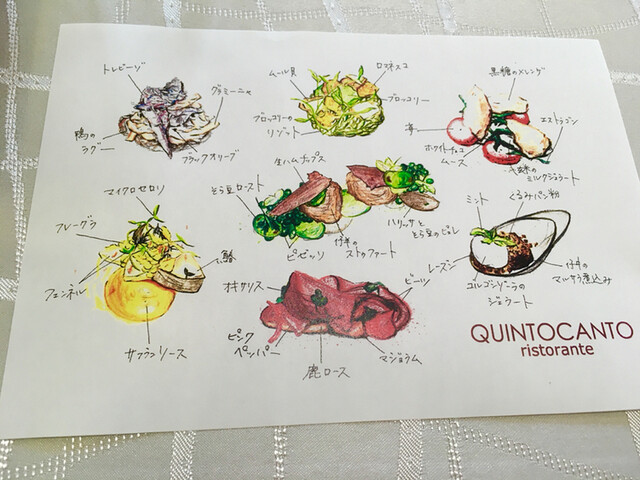 トレビーゾ
グラミーニャ
鴨の
ラグー
ブラックオリーブ
ムール貝
ロマネスコ
ブロッコリーの
リゾット
ブロッコリー
黒糖のメレンゲ
苺
エストラゴン
ホワイトチョコ
ムース
ミルクジェラート
マイクロセロリ
フォーグラ
フェンネル
鰆
サフランソース
生ハムチップス
そら豆ロースト
ピゼッリ
仔羊の
ストゥファート
ハリッサと
そら豆のピュレ
ミント
くるみパン粉
レーズン
ゴルゴンゾーラの
ジェラート
仔牛の
マルサラ煮込み
オキサリス
ビーツ
ピンク
ペッパー
鹿ロース
マジョラム
QUINTOCANTO
ristorante